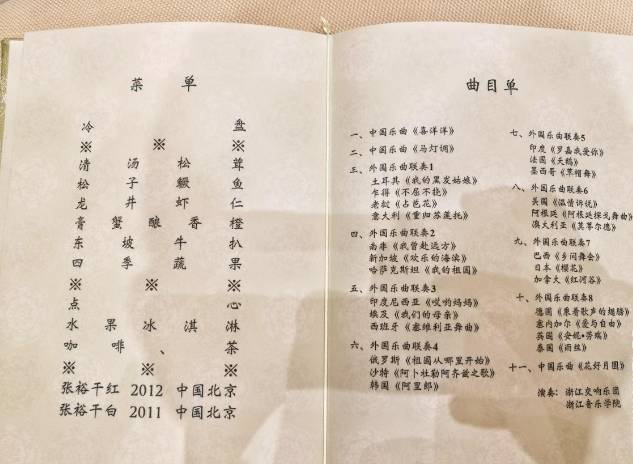 菜 单
冷 盘
※ ※ ※
清 汤 松 茸
松 子 鳜 鱼
龙 井 虾 仁
膏 蟹 酿 香 橙
东 坡 牛 扒
四 季 蔬 果
※ ※ ※
点 心
水 果 冰 淇 淋
咖 啡 、 茶
※ ※ ※
张裕干红 2012 中国北京
张裕干白 2011 中国北京
曲目单
一、中国乐曲《喜洋洋》
二、中国乐曲《马灯调》
三、外国乐曲联奏1
土耳其《我的黑发姑娘》
乍得《不屈不挠》
老挝《占芭花》
意大利《重归苏莲托》
四、外国乐曲联奏2
南非《我曾赴远方》
新加坡《欢乐的海滨》
哈萨克斯坦《我的祖国》
五、外国乐曲联奏3
印度尼西亚《哎哟妈妈》
埃及《我们的母亲》
西班牙《塞维利亚舞曲》
六、外国乐曲联奏4
俄罗斯《祖国从哪里开始》
沙特《阿卜杜勒阿齐兹之歌》
韩国《阿里郎》
七、外国乐曲联奏5
印度《罗嘉我爱你》
法国《天鹅》
墨西哥《草帽舞》
八、外国乐曲联奏6
美国《温情诉说》
阿根廷《阿根廷探戈舞曲》
澳大利亚《莫蒂尔德》
九、外国乐曲联奏7
巴西《乡间舞会》
日本《樱花》
加拿大《红河谷》
十、外国乐曲联奏8
德国《乘着歌声的翅膀》
塞内加尔《爱与自由》
英国《安妮•劳瑞》
泰国《雨丝》
十一、中国乐曲《花好月圆》
演奏：浙江交响乐团
浙江音乐学院